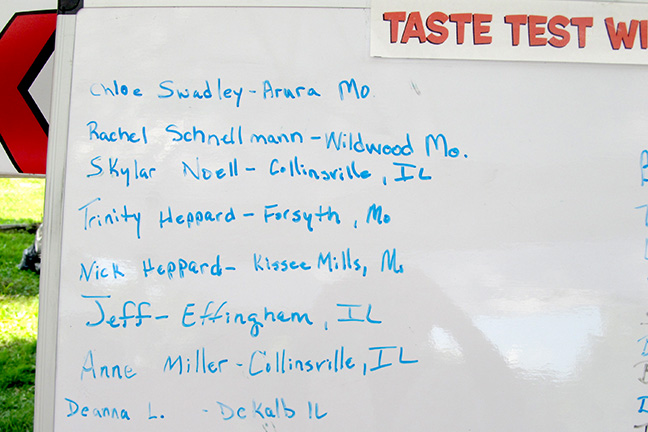 TASTE TEST WI
Chloe Swadley - Arura Mo.
Rachel Schnellmann - Wildwood Mo.
Skylar Noell - Collinsville, IL
Trinity Heppard - Forsyth, Mo
Nick Heppard - Kissee Mills, Mo
Jeff - Effingham, IL
Anne Miller - Collinsville, IL
Deanna L. - DeKalb IL